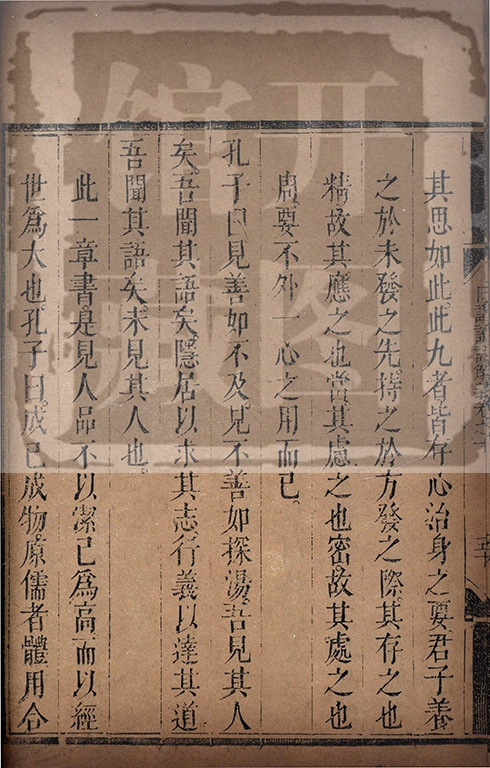 其思如此此九者皆存心治身之要君子養
之於未發之先持之於方發之際其存之也
精故其應之也當其慮之也密故其處之也
周要不外一心之用而已。
孔子曰見善如不及見不善如探湯。吾見其人
矣。吾聞其語矣。隱居以求其志行義以達其道
吾聞其語矣。未見其人也。
此一章書是見人品不以潔已爲高而以經
世爲大也。孔子曰。成已成物。原儒者體用合